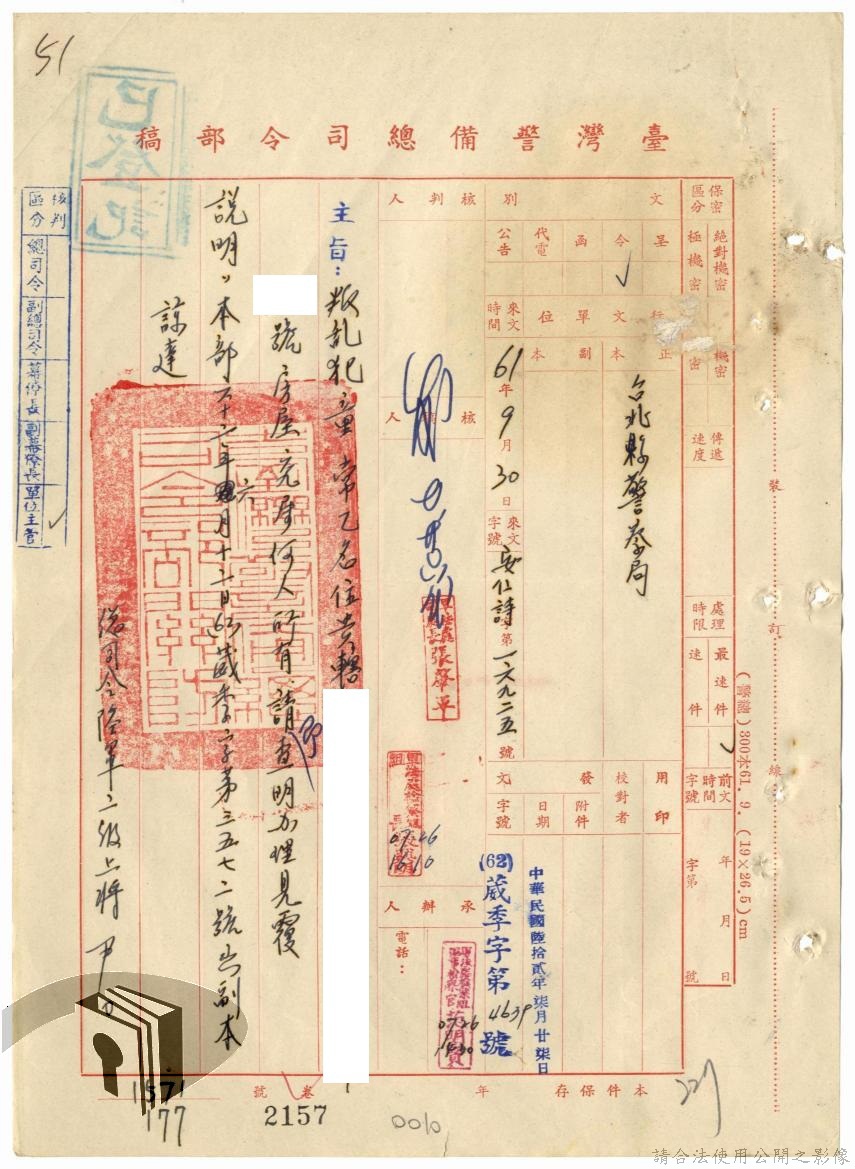 51
已登記
臺灣警備總司令部稿
保密區分
絕對機密
極機密
機密
密
傳遞速度
處理時限
最速件
速件
前文時間字號
年
月
日
字第
號
文別
呈
令
函
代電
公告
行文單位
正本
副本
台北縣警察局
來文時間
61年9月30日
來文字號
安仁詩字第一六九二五號
用印
校對者
發文
附件
日期
字號
中華民國陸拾貳年柒月廿柒日
(62)葳季字第4639號
核判人
核稿人
張
承辦人
電話：
07 26
16 10
07 26
主旨：叛乱犯童常乙名位貴轄
號房屋究屬何人所有，請查明办理見覆
說明：本部六十二年六月十二日(62)葳季字第三五七二號出副本
諒達
總司令陸軍二級上將尹
核判區分
總司令
副總司令
幕僚長
副幕僚長
單位主管
裝
訂
線
(普通)300本61. 9. (19×26.5)cm
本件保存
年
卷
號
1571
177
2157
0010
請合法使用公開之影像